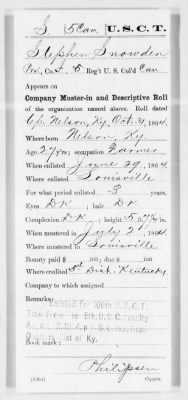 S. 5 Cav. U.S.C.T.
Stephen Snowden
Pvt., Co. 5 Reg't U. S. Col'd Cav.
Appears on
Company Muster-in and Descriptive Roll
of the organization named above. Roll dated
Cp. Nelson, Ky. Oct. 24, 1864
Where born Nelson, Ky
Age 27 y'rs; occupation Farmer
When enlisted June 29, 1864
Where enlisted Louisville
For what period enlisted 3 years.
Eyes DK; hair DK
Complexion DK; height 5 ft. in.
When mustered in July 21, 1864
Where mustered in Louisville
Bounty paid $ 100; due $ 100
Where credited 5th Dist. Kentucky
Company to which assigned
Remarks:
Enlisted for U.S.C.T.
to 5th U.S. Cavalry
of Ky.
Book mark:
Philipsen
Copyist.